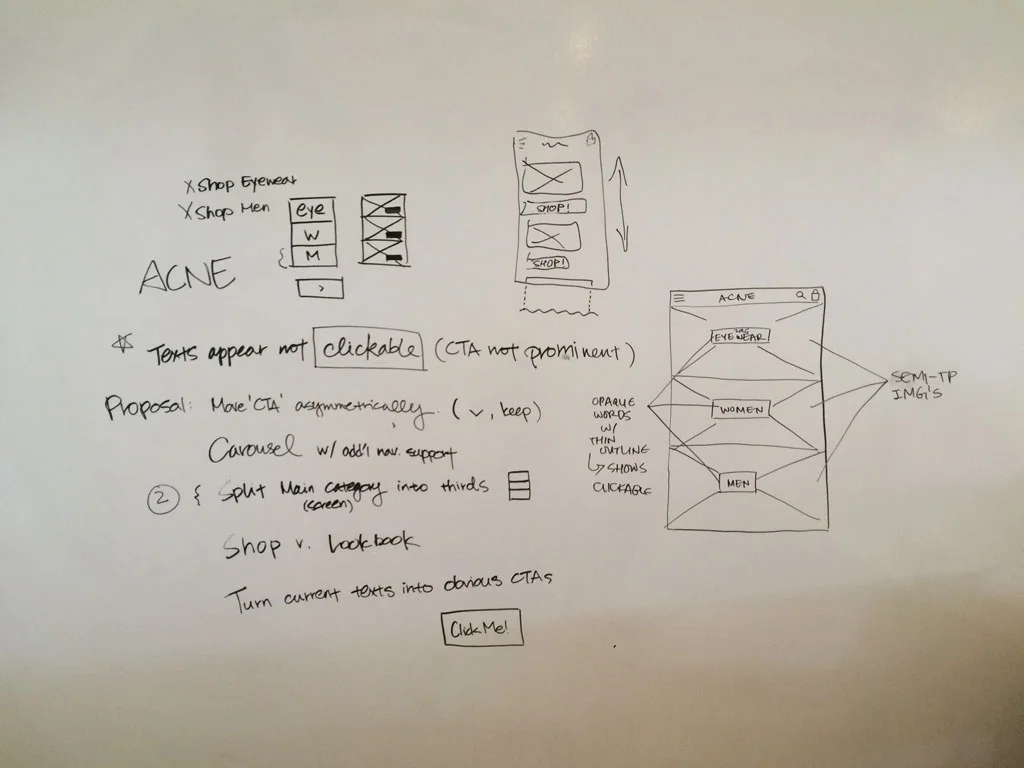 X Shop Eyewear
X Shop Men
eye
W
M
>
ACNE
SHOP!
SHOP!
☆ Texts appear not clickable (CTA not prominent)
Proposal: Move 'CTA' asymmetrically. ( v, keep)
Carousel w/ add'l nav. support
② { Split Main category into thirds
(screen)
Shop v. Lookbook
Turn current texts into obvious CTAs
Click Me!
ACNE
EYEWEAR
WOMEN
MEN
OPAQUE
WORDS
W/
THIN
OUTLINE
↳ SHOWS
CLICKABLE
SEMI-TP
IMG'S